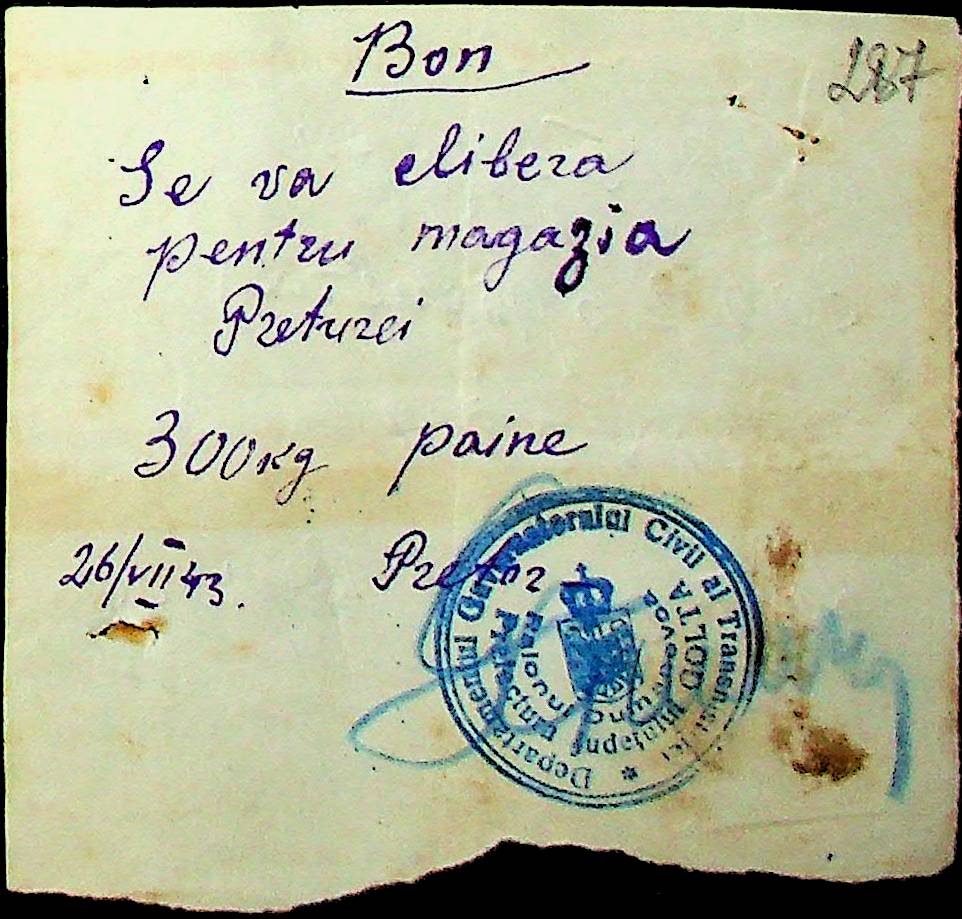 Bon
287
Se va elibera
pentru magazia
Preturei
300kg paine
26/VII 43.
Pretor
Departament Guvernatorului Civil al Transnistriei
Prefectura Județului GOLTA
Raionul